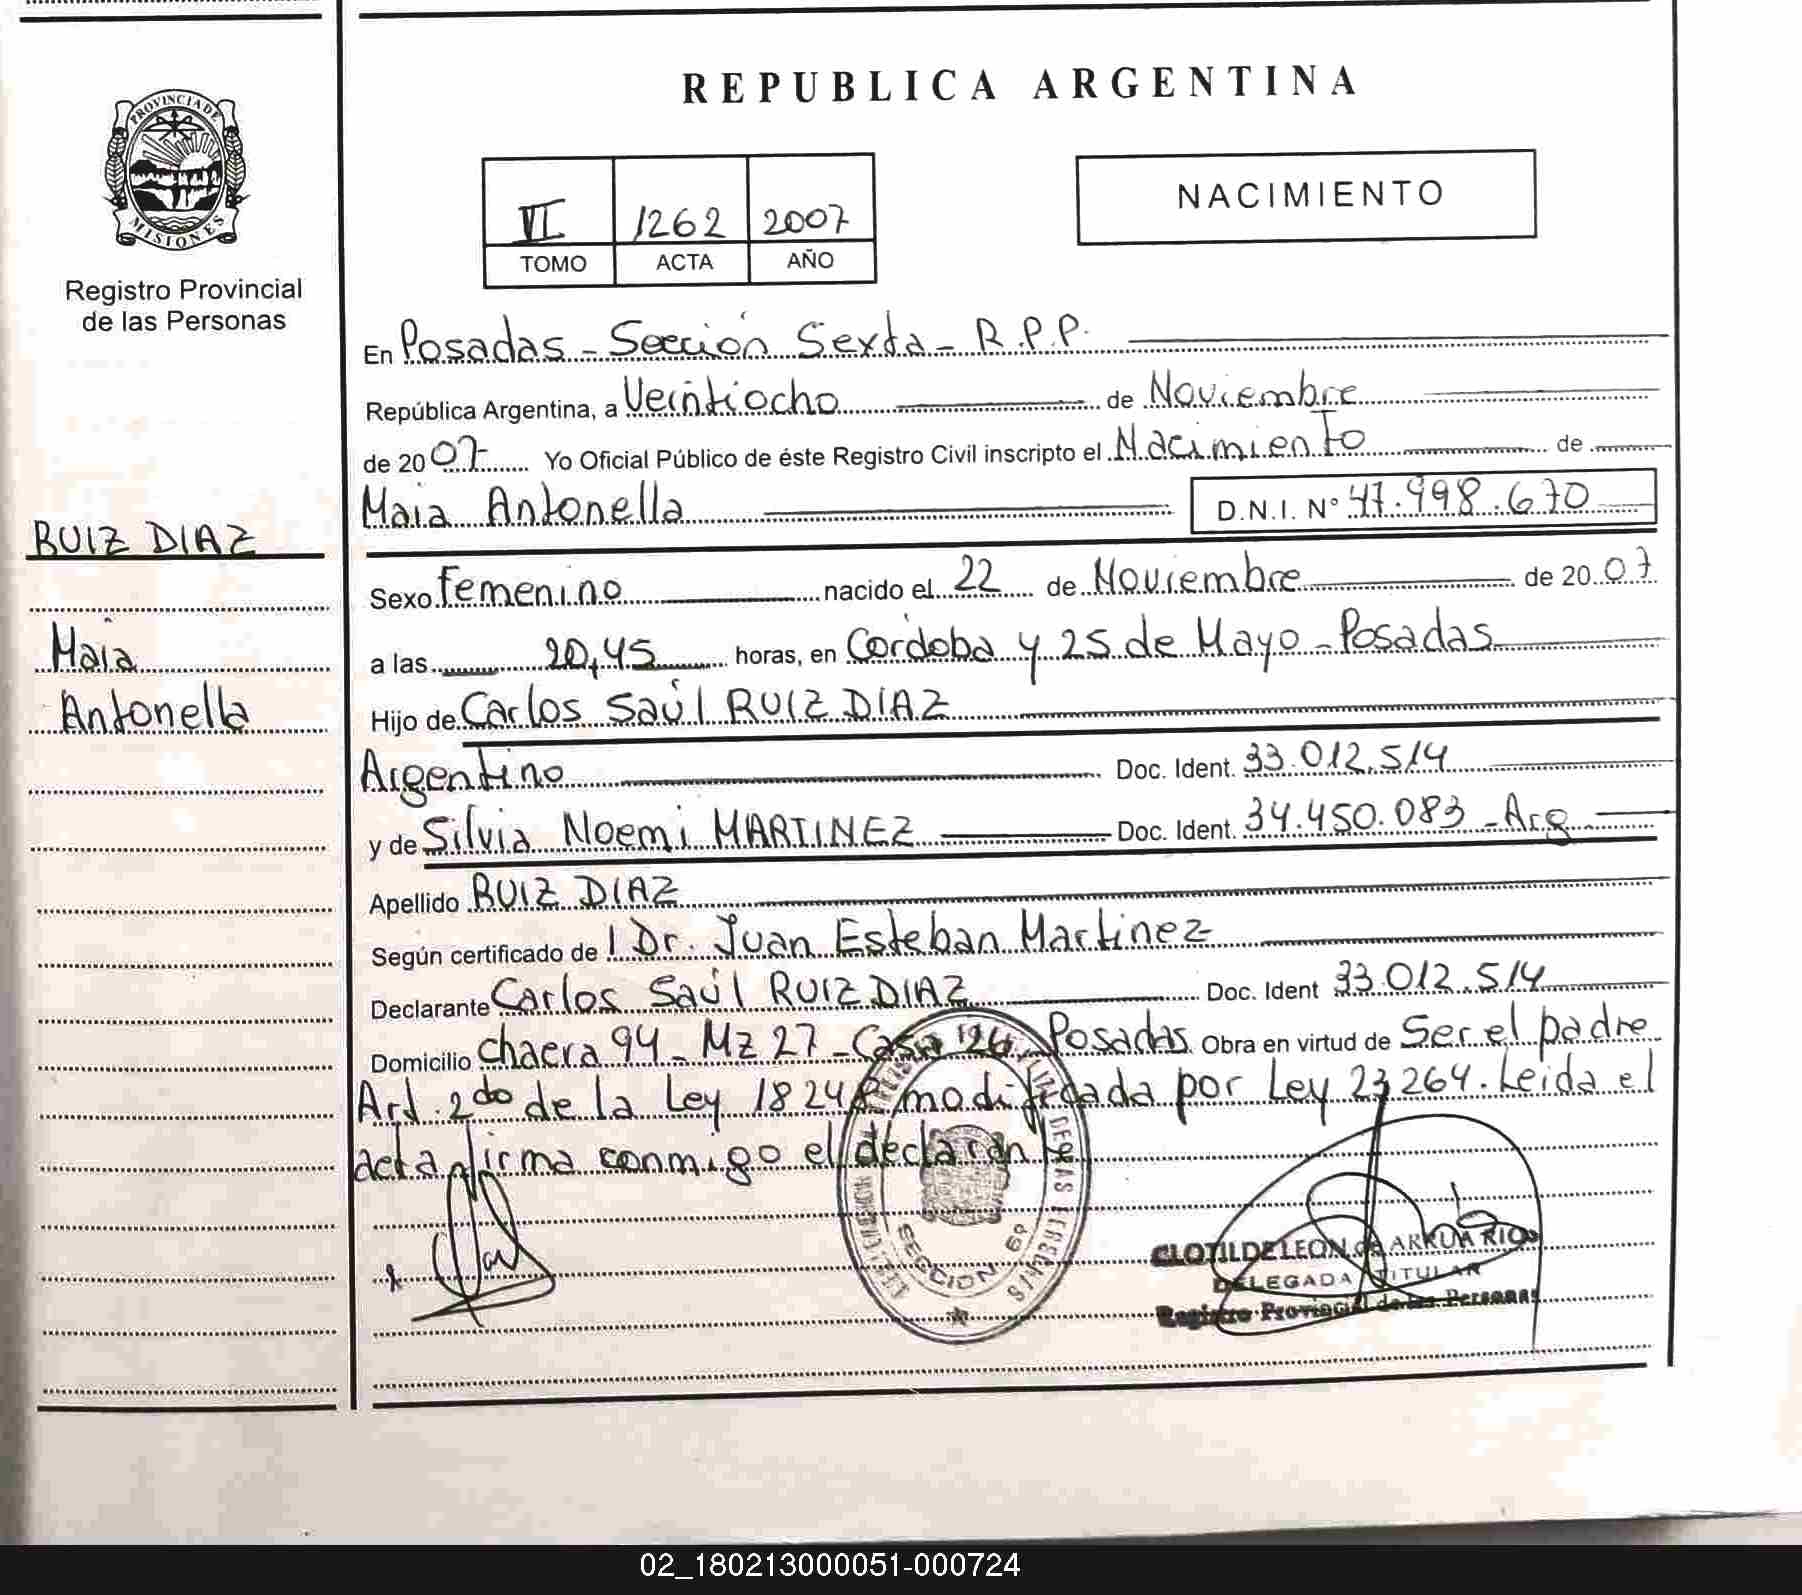 PROVINCIA DE
MISIONES
Registro Provincial
de las Personas
RUIZ DIAZ
Maia
Antonella
REPUBLICA ARGENTINA
VI 1262 2007
TOMO ACTA AÑO
NACIMIENTO
En Posadas - Sección Sexta - R.P.P.
República Argentina, a Veintiocho de Noviembre
de 2007 Yo Oficial Público de éste Registro Civil inscripto el Nacimiento de
Maia Antonella D.N.I. Nº 47.998.670
Sexo femenino nacido el 22 de Noviembre de 2007
a las 20,45 horas, en Córdoba y 25 de Mayo - Posadas
Hijo de Carlos Saúl RUIZ DIAZ
Argentino Doc. Ident. 33.012.514
y de Silvia Noemi MARTINEZ Doc. Ident. 34.450.083 - Arg
Apellido RUIZ DIAZ
Según certificado de l Dr. Juan Esteban Martinez
Declarante Carlos Saúl RUIZ DIAZ Doc. Ident 33.012.514
Domicilio chacra 94 - Mz 27 - Casa Posadas Obra en virtud de Ser el padre
Art. 2do de la Ley 18248 modificada por Ley 23264. Leida el
acta firma conmigo el declarante
SECCION 6º
CLOTILDE LEON de ARRUA RIOS
DELEGADA TITULAR
Registro Provincial de las Personas
02_180213000051-000724